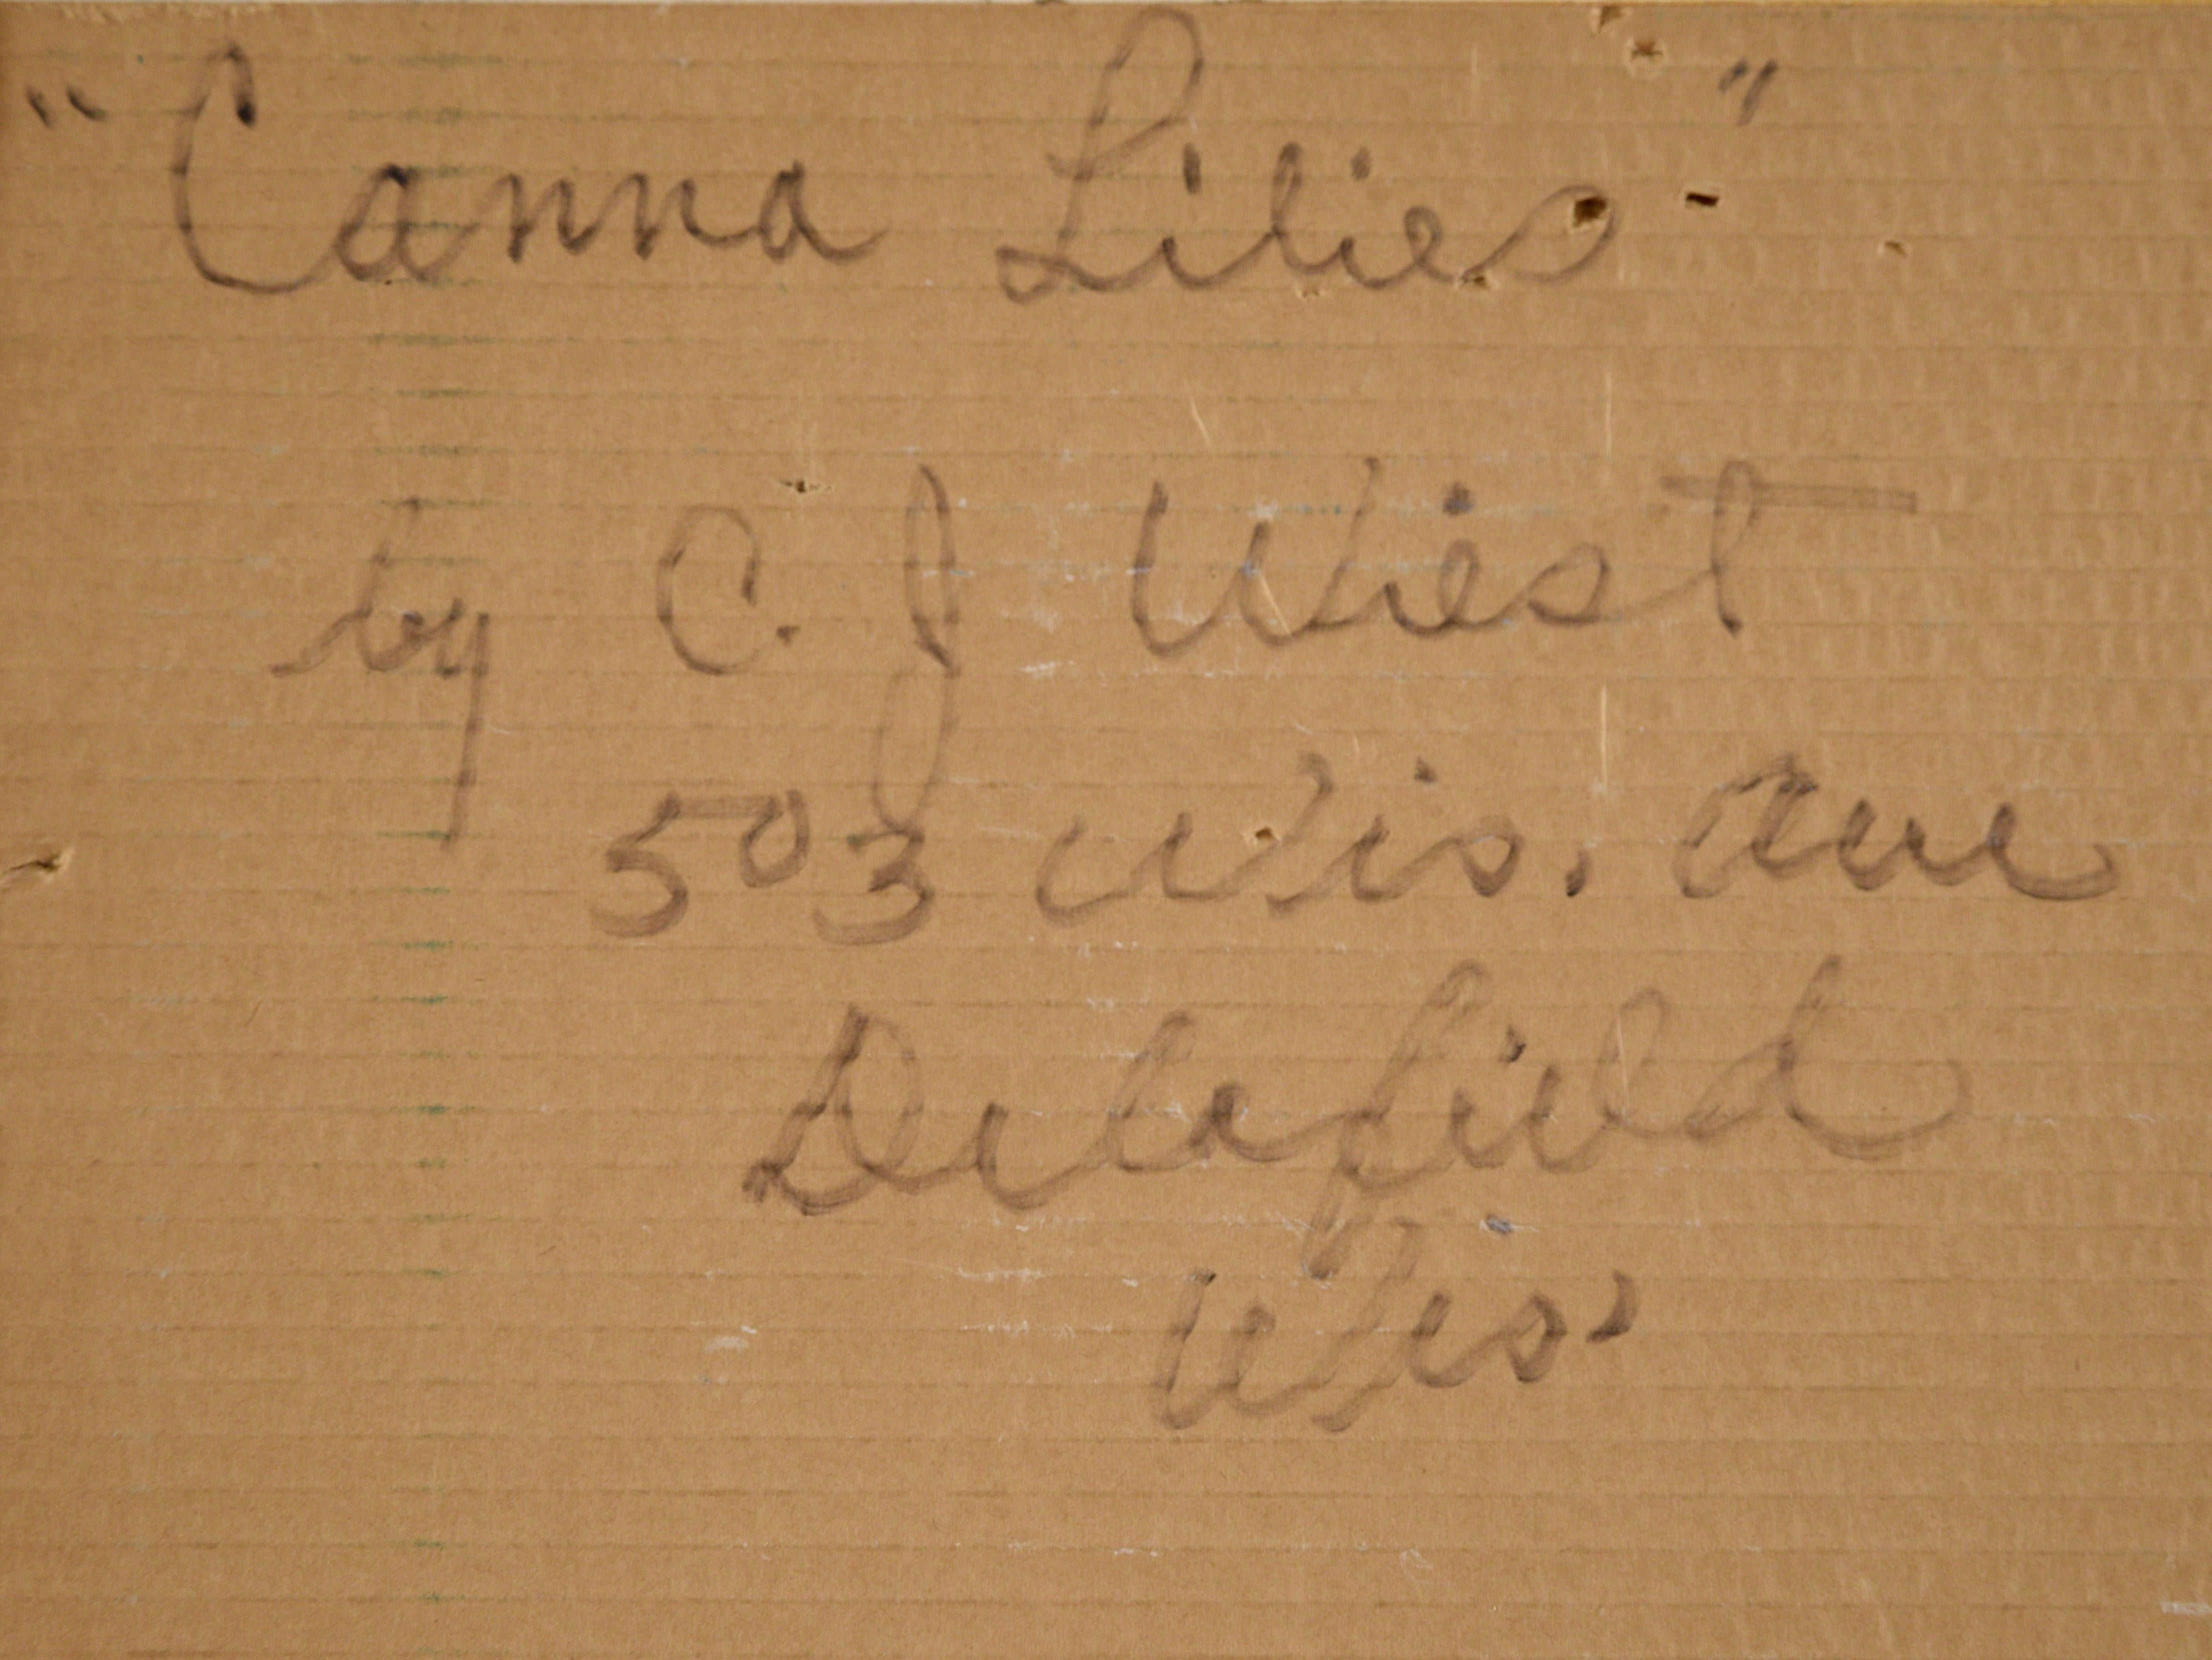 "Canna Lilies"
by C. J Wiest
503 Wis. Ave
Delafield
Wis.